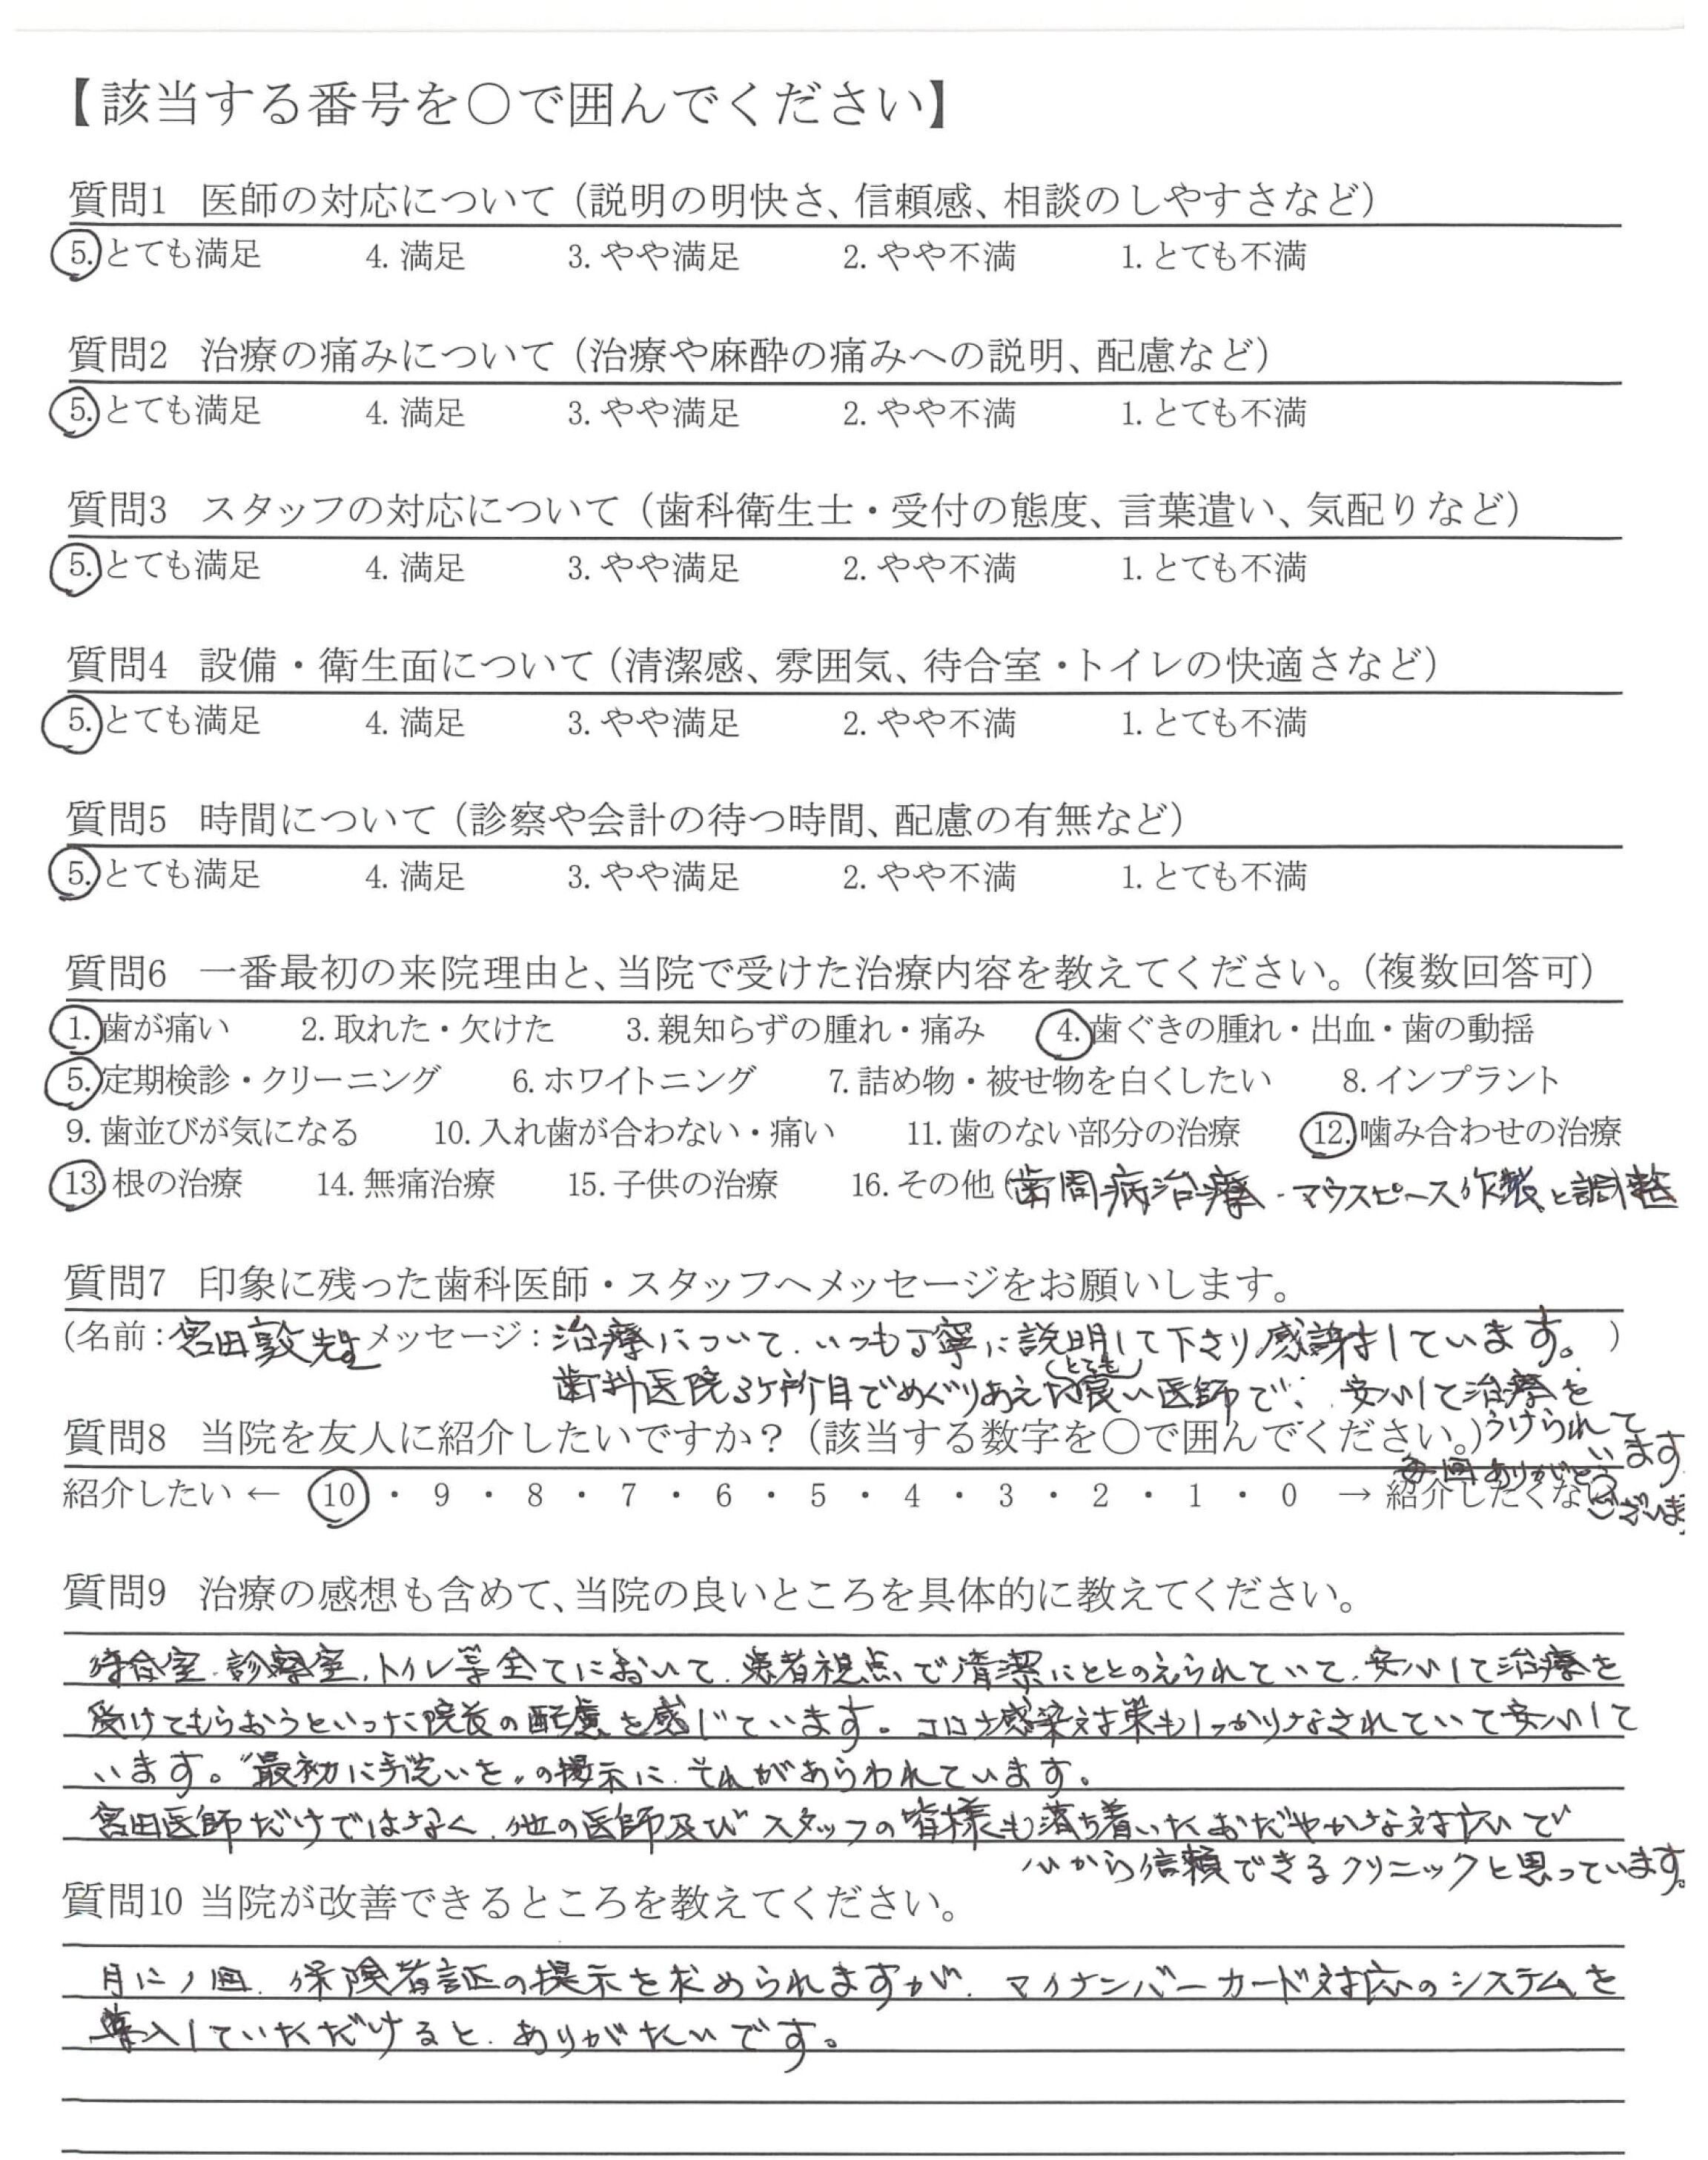 【該当する番号を○で囲んでください】
質問1 医師の対応について（説明の明快さ、信頼感、相談のしやすさなど）
5. とても満足 4. 満足 3. やや満足 2. やや不満 1. とても不満
質問2 治療の痛みについて（治療や麻酔の痛みへの説明、配慮など）
5. とても満足 4. 満足 3. やや満足 2. やや不満 1. とても不満
質問3 スタッフの対応について（歯科衛生士・受付の態度、言葉遣い、気配りなど）
5. とても満足 4. 満足 3. やや満足 2. やや不満 1. とても不満
質問4 設備・衛生面について（清潔感、雰囲気、待合室・トイレの快適さなど）
5. とても満足 4. 満足 3. やや満足 2. やや不満 1. とても不満
質問5 時間について（診察や会計の待つ時間、配慮の有無など）
5. とても満足 4. 満足 3. やや満足 2. やや不満 1. とても不満
質問6 一番最初の来院理由と、当院で受けた治療内容を教えてください。（複数回答可）
1. 歯が痛い 2. 取れた・欠けた 3. 親知らずの腫れ・痛み 4. 歯ぐきの腫れ・出血・歯の動揺
5. 定期検診・クリーニング 6. ホワイトニング 7. 詰め物・被せ物を白くしたい 8. インプラント
9. 歯並びが気になる 10. 入れ歯が合わない・痛い 11. 歯のない部分の治療 12. 噛み合わせの治療
13. 根の治療 14. 無痛治療 15. 子供の治療 16. その他（歯周病治療、マウスピース作製と調整
質問7 印象に残った歯科医師・スタッフへメッセージをお願いします。
（名前：宮田敦先生 メッセージ：治療について、いつも丁寧に説明して下さり感謝しています。）
歯科医院3ヶ所目でめぐりあえた（とても）良い医師で、安心して治療を
うけられています
毎回ありがとうございま
質問8 当院を友人に紹介したいですか？（該当する数字を○で囲んでください。）
紹介したい ← 10 ・ 9 ・ 8 ・ 7 ・ 6 ・ 5 ・ 4 ・ 3 ・ 2 ・ 1 ・ 0 → 紹介したくない
質問9 治療の感想も含めて、当院の良いところを具体的に教えてください。
待合室、診察室、トイレ等全てにおいて、患者視点で清潔にととのえられていて、安心して治療を
受けてもらおうといった院長の配慮を感じています。コロナ感染対策もしっかりなされていて安心して
います。"最初に手洗いを"の掲示に、それがあらわれています。
宮田医師だけではなく、他の医師及びスタッフの皆様も落ち着いたおだやかな対応で
心から信頼できるクリニックと思っています。
質問10 当院が改善できるところを教えてください。
月に1回、保険者証の提示を求められますが、マイナンバーカード対応のシステムを
導入していただけると、ありがたいです。